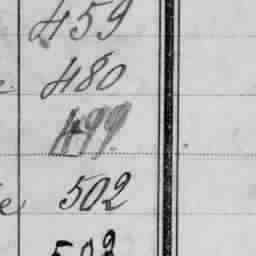 459
480
499
e 502
502